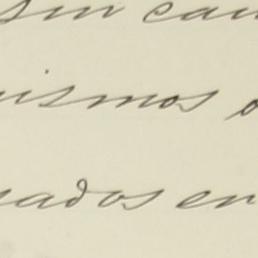 sin cau
ismos o
sados en